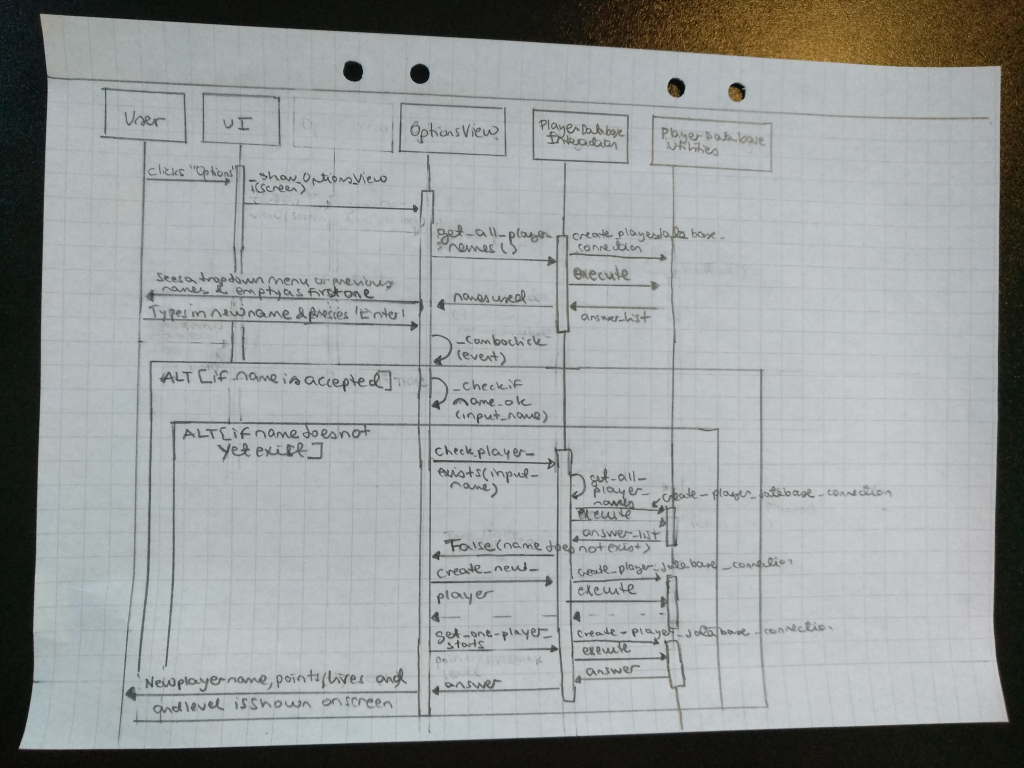 User
UI
OptionsView
PlayerDatabase
Interaction
PlayerDatabase
Utilities
clicks "Options"
_show_OptionsView
(screen)
get_all_player_
names()
create_playerdatabase_
connection
execute
answer_list
names used
sees a dropdown menu of previous
names & empty as first one
Types in new name & presses 'Enter'
_comboclick
(event)
ALT [if name is accepted]
_checkif
name_ok
(input_name)
ALT [if name does not
yet exist]
checkplayer_
exists(input_
name)
get_all_
player_
names
create_player_database_connection
execute
answer_list
False (name does not exist)
create_new_
player
create_player_database_connection
execute
get_one_player_
stats
create_player_database_connection
execute
answer
answer
New player name, points, lives and
and level is shown on screen